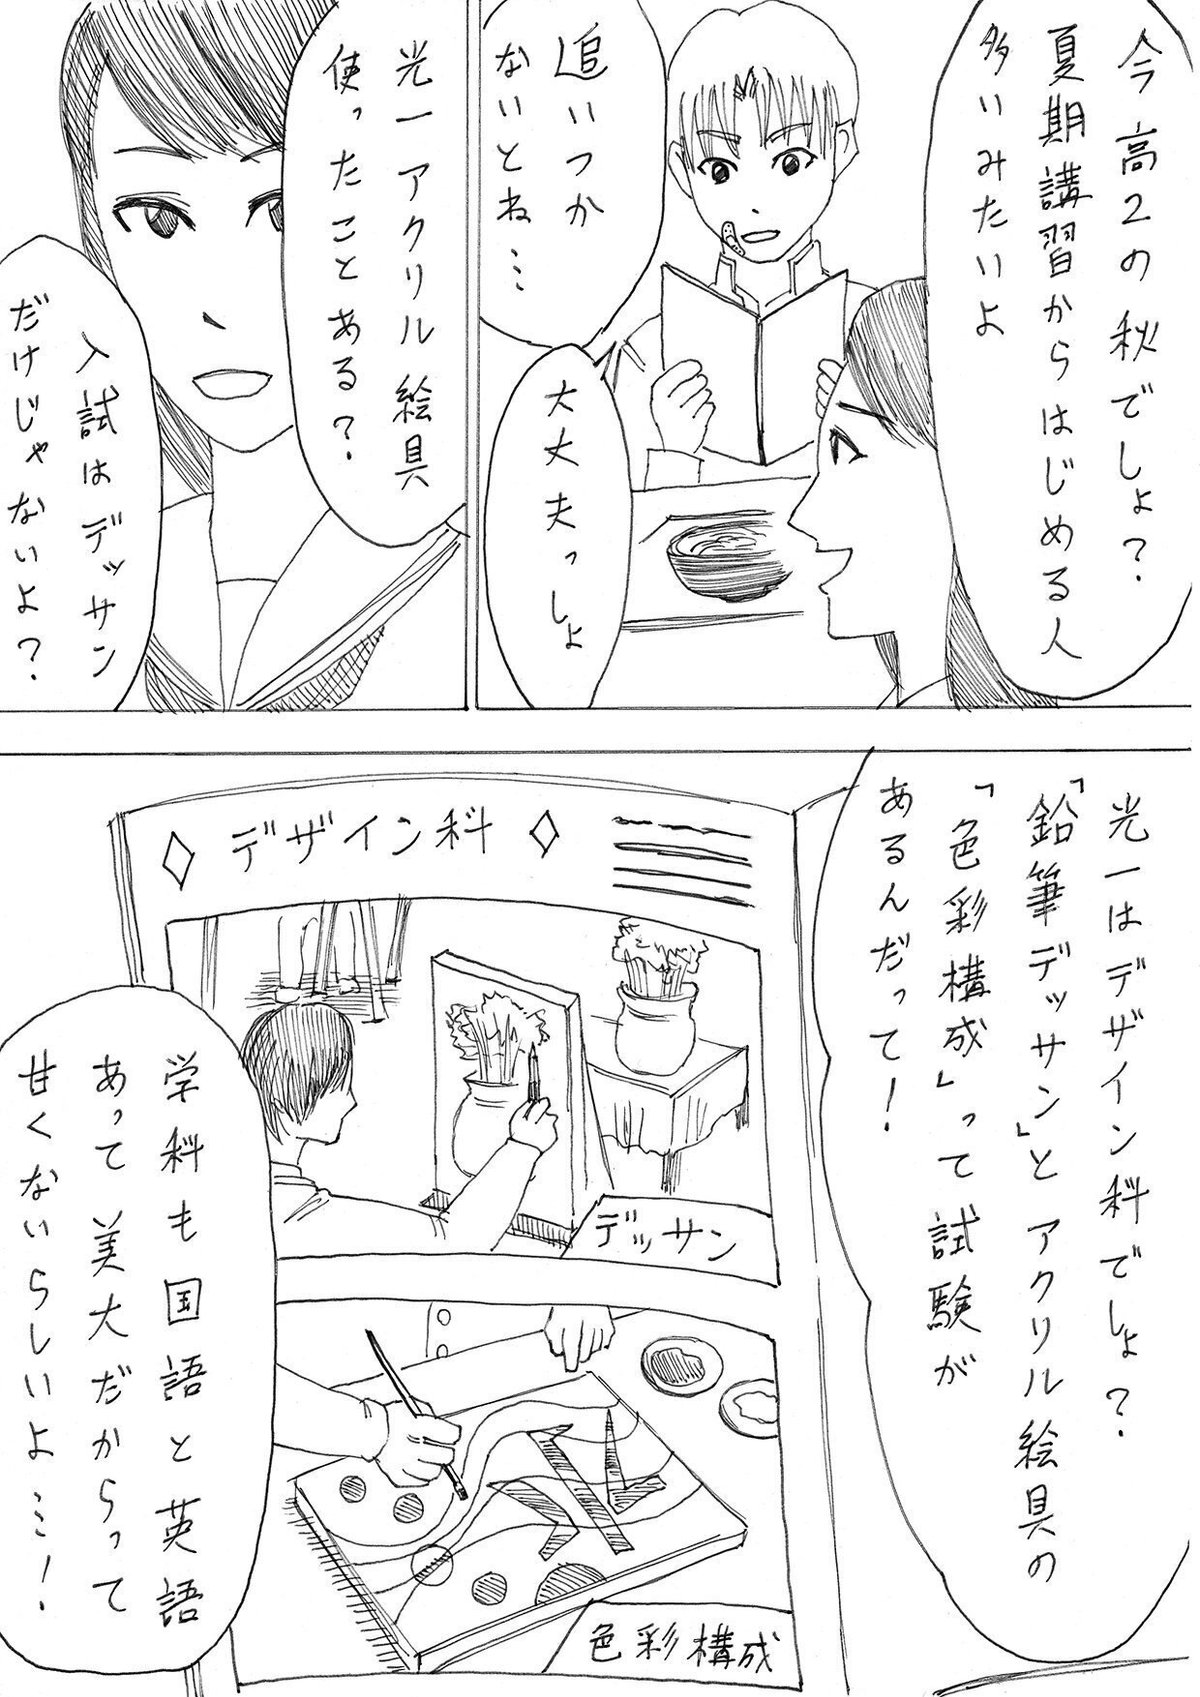 今高2の秋でしょ?
夏期講習からはじめる人
多いみたいよ
追いつか
ないとね…
大丈夫っしょ
光一アクリル絵具
使ったことある?
入試はデッサン
だけじゃないよ?
光一はデザイン科でしょ?
「鉛筆デッサン」とアクリル絵具の
「色彩構成」って試験が
あるんだって!
デザイン科
デッサン
色彩構成
学科も国語と英語
あって美大だからって
甘くないらしいよ…!